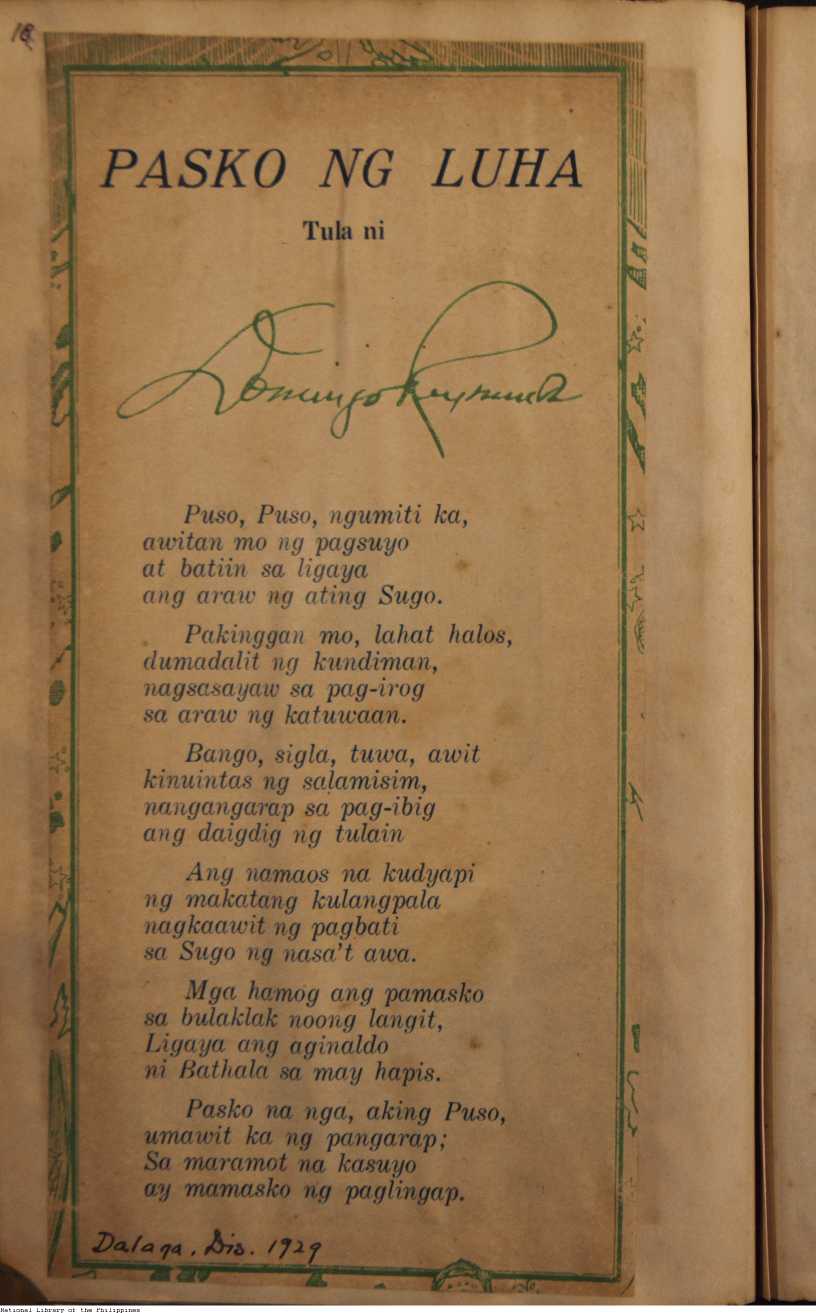 18
PASKO NG LUHA
Tula ni
Domingo Raymundo
Puso, Puso, ngumiti ka,
awitan mo ng pagsuyo
at batiin sa ligaya
ang araw ng ating Sugo.
Pakinggan mo, lahat halos,
dumadalit ng kundiman,
nagsasayaw sa pag-irog
sa araw ng katuwaan.
Bango, sigla, tuwa, awit
kinuintas ng salamisim,
nangangarap sa pag-ibig
ang daigdig ng tulain
Ang namaos na kudyapi
ng makatang kulangpala
nagkaawit ng pagbati
sa Sugo ng nasa't awa.
Mga hamog ang pamasko
sa bulaklak noong langit,
Ligaya ang aginaldo
ni Bathala sa may hapis.
Pasko na nga, aking Puso,
umawit ka ng pangarap;
Sa maramot na kasuyo
ay mamasko ng paglingap.
Dalaga, Dis. 1929
National Library of the Philippines